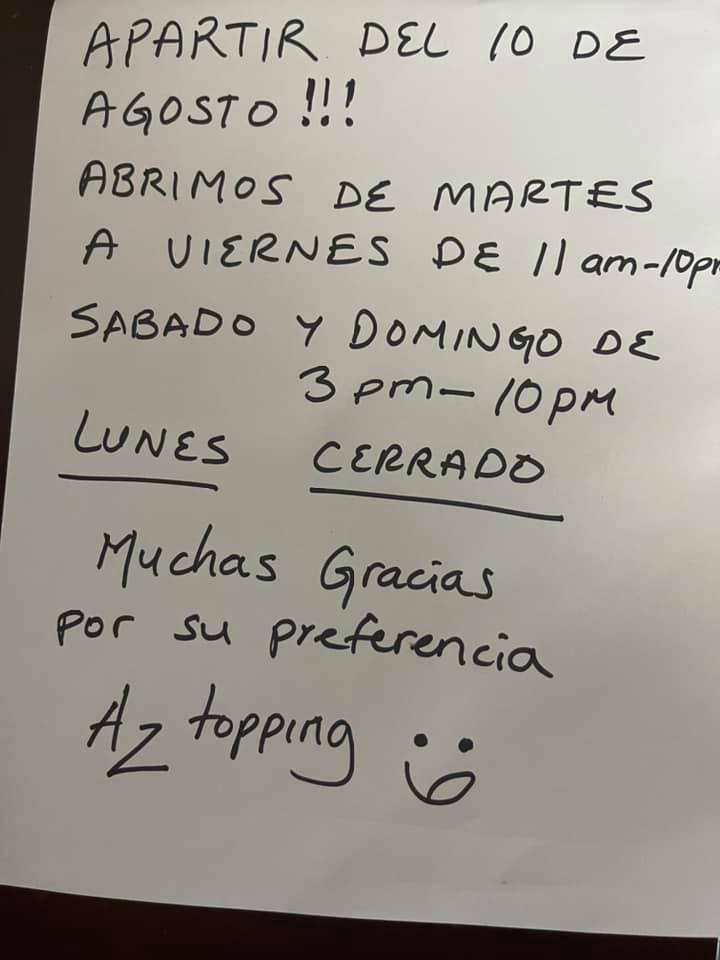 APARTIR DEL 10 DE
AGOSTO!!!
ABRIMOS DE MARTES
A VIERNES DE 11am-10pm
SABADO Y DOMINGO DE
3pm-10PM
LUNES CERRADO
Muchas Gracias
por su preferencia
Az topping